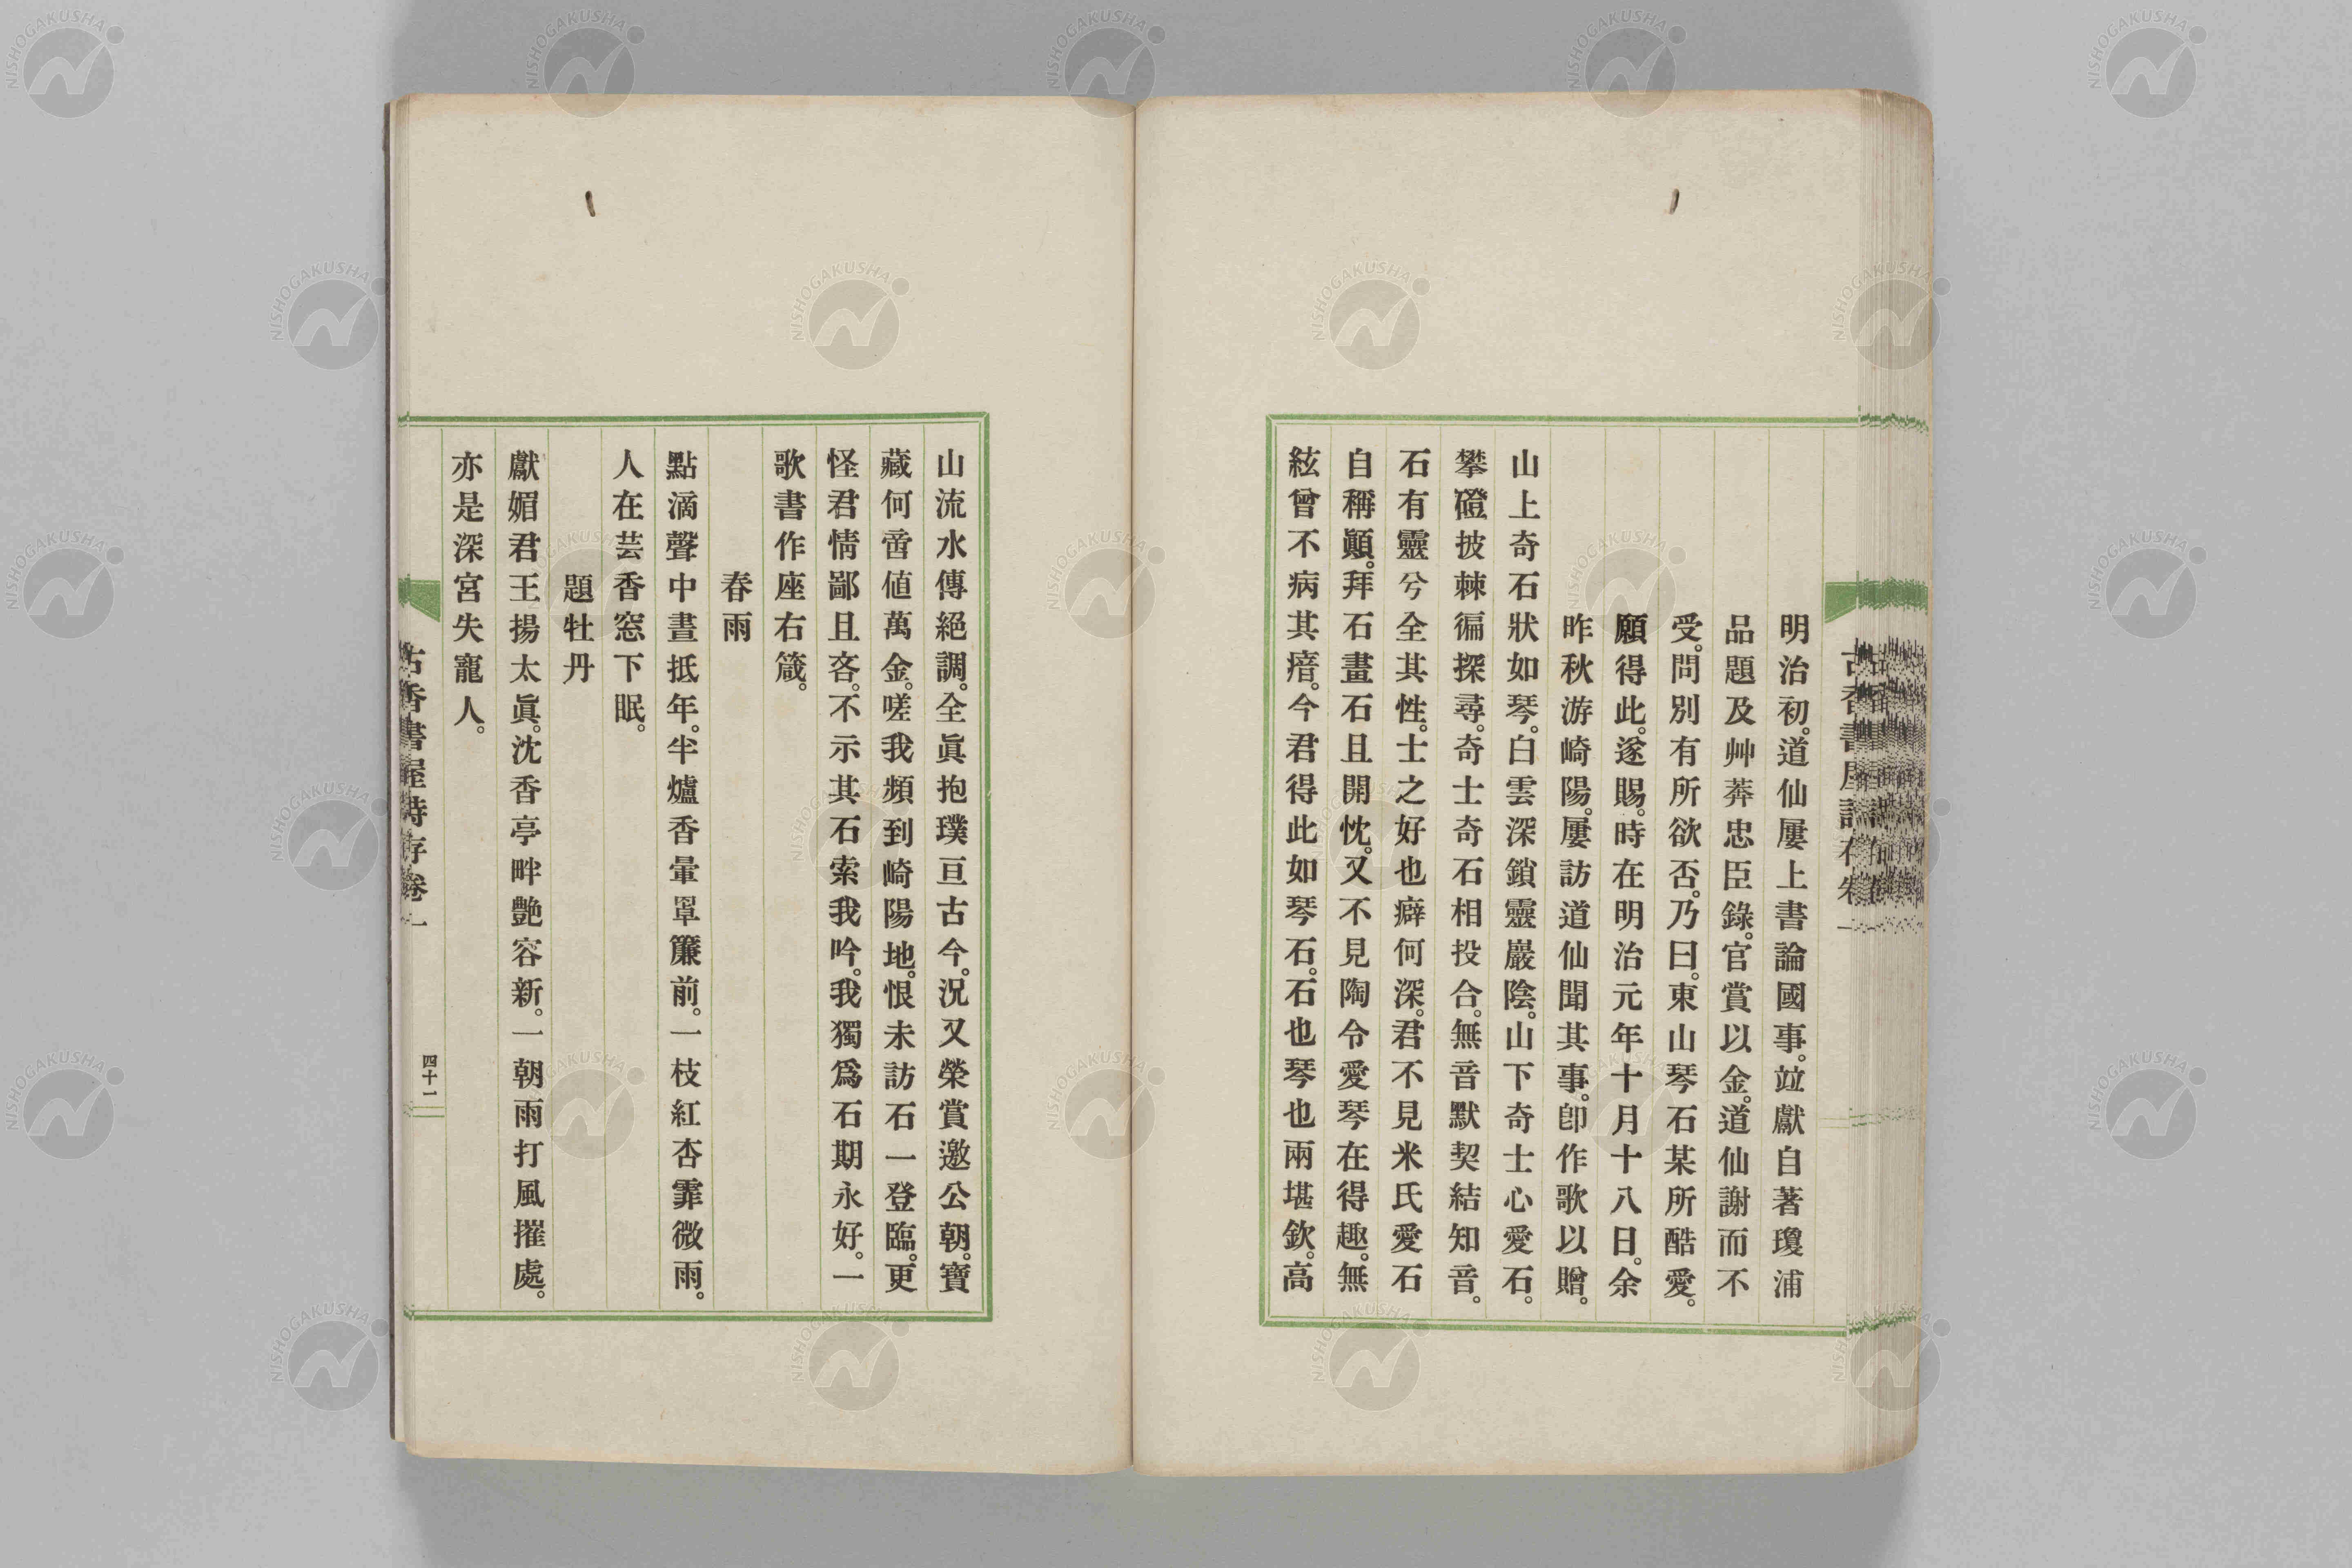 明治初。道仙屢上書論國事。竝獻自著瓊浦
品題及艸莽忠臣錄。官賞以金。道仙謝而不
受。問別有所欲否。乃曰。東山琴石某所酷愛。
願得此。遂賜。時在明治元年十月十八日。余
昨秋游崎陽。屢訪道仙聞其事。卽作歌以贈。
山上奇石狀如琴。白雲深鎖靈巖陰。山下奇士心愛石。
攀磴披棘徧探尋。奇士奇石相投合。無音默契結知音。
石有靈兮全其性。士之好也癖何深。君不見米氏愛石
自稱顚。拜石畫石且開忱。又不見陶令愛琴在得趣。無
絃曾不病其瘖。今君得此如琴石。石也琴也兩堪欽。高
山流水傳絕調。全眞抱璞亘古今。況又榮賞邀公朝。寶
藏何啻値萬金。嗟我頻到崎陽地。恨未訪石一登臨。更
怪君情鄙且吝。不示其石索我吟。我獨爲石期永好。一
歌書作座右箴。
春雨
點滴聲中晝抵年。半爐香暈罩簾前。一枝紅杏霏微雨。
人在芸香窓下眠。
題牡丹
獻媚君王揚太眞。沈香亭畔艶容新。一朝雨打風摧處。
亦是深宮失寵人。
古香書屋詩存卷一
四十一
NISHOGAKUSHA